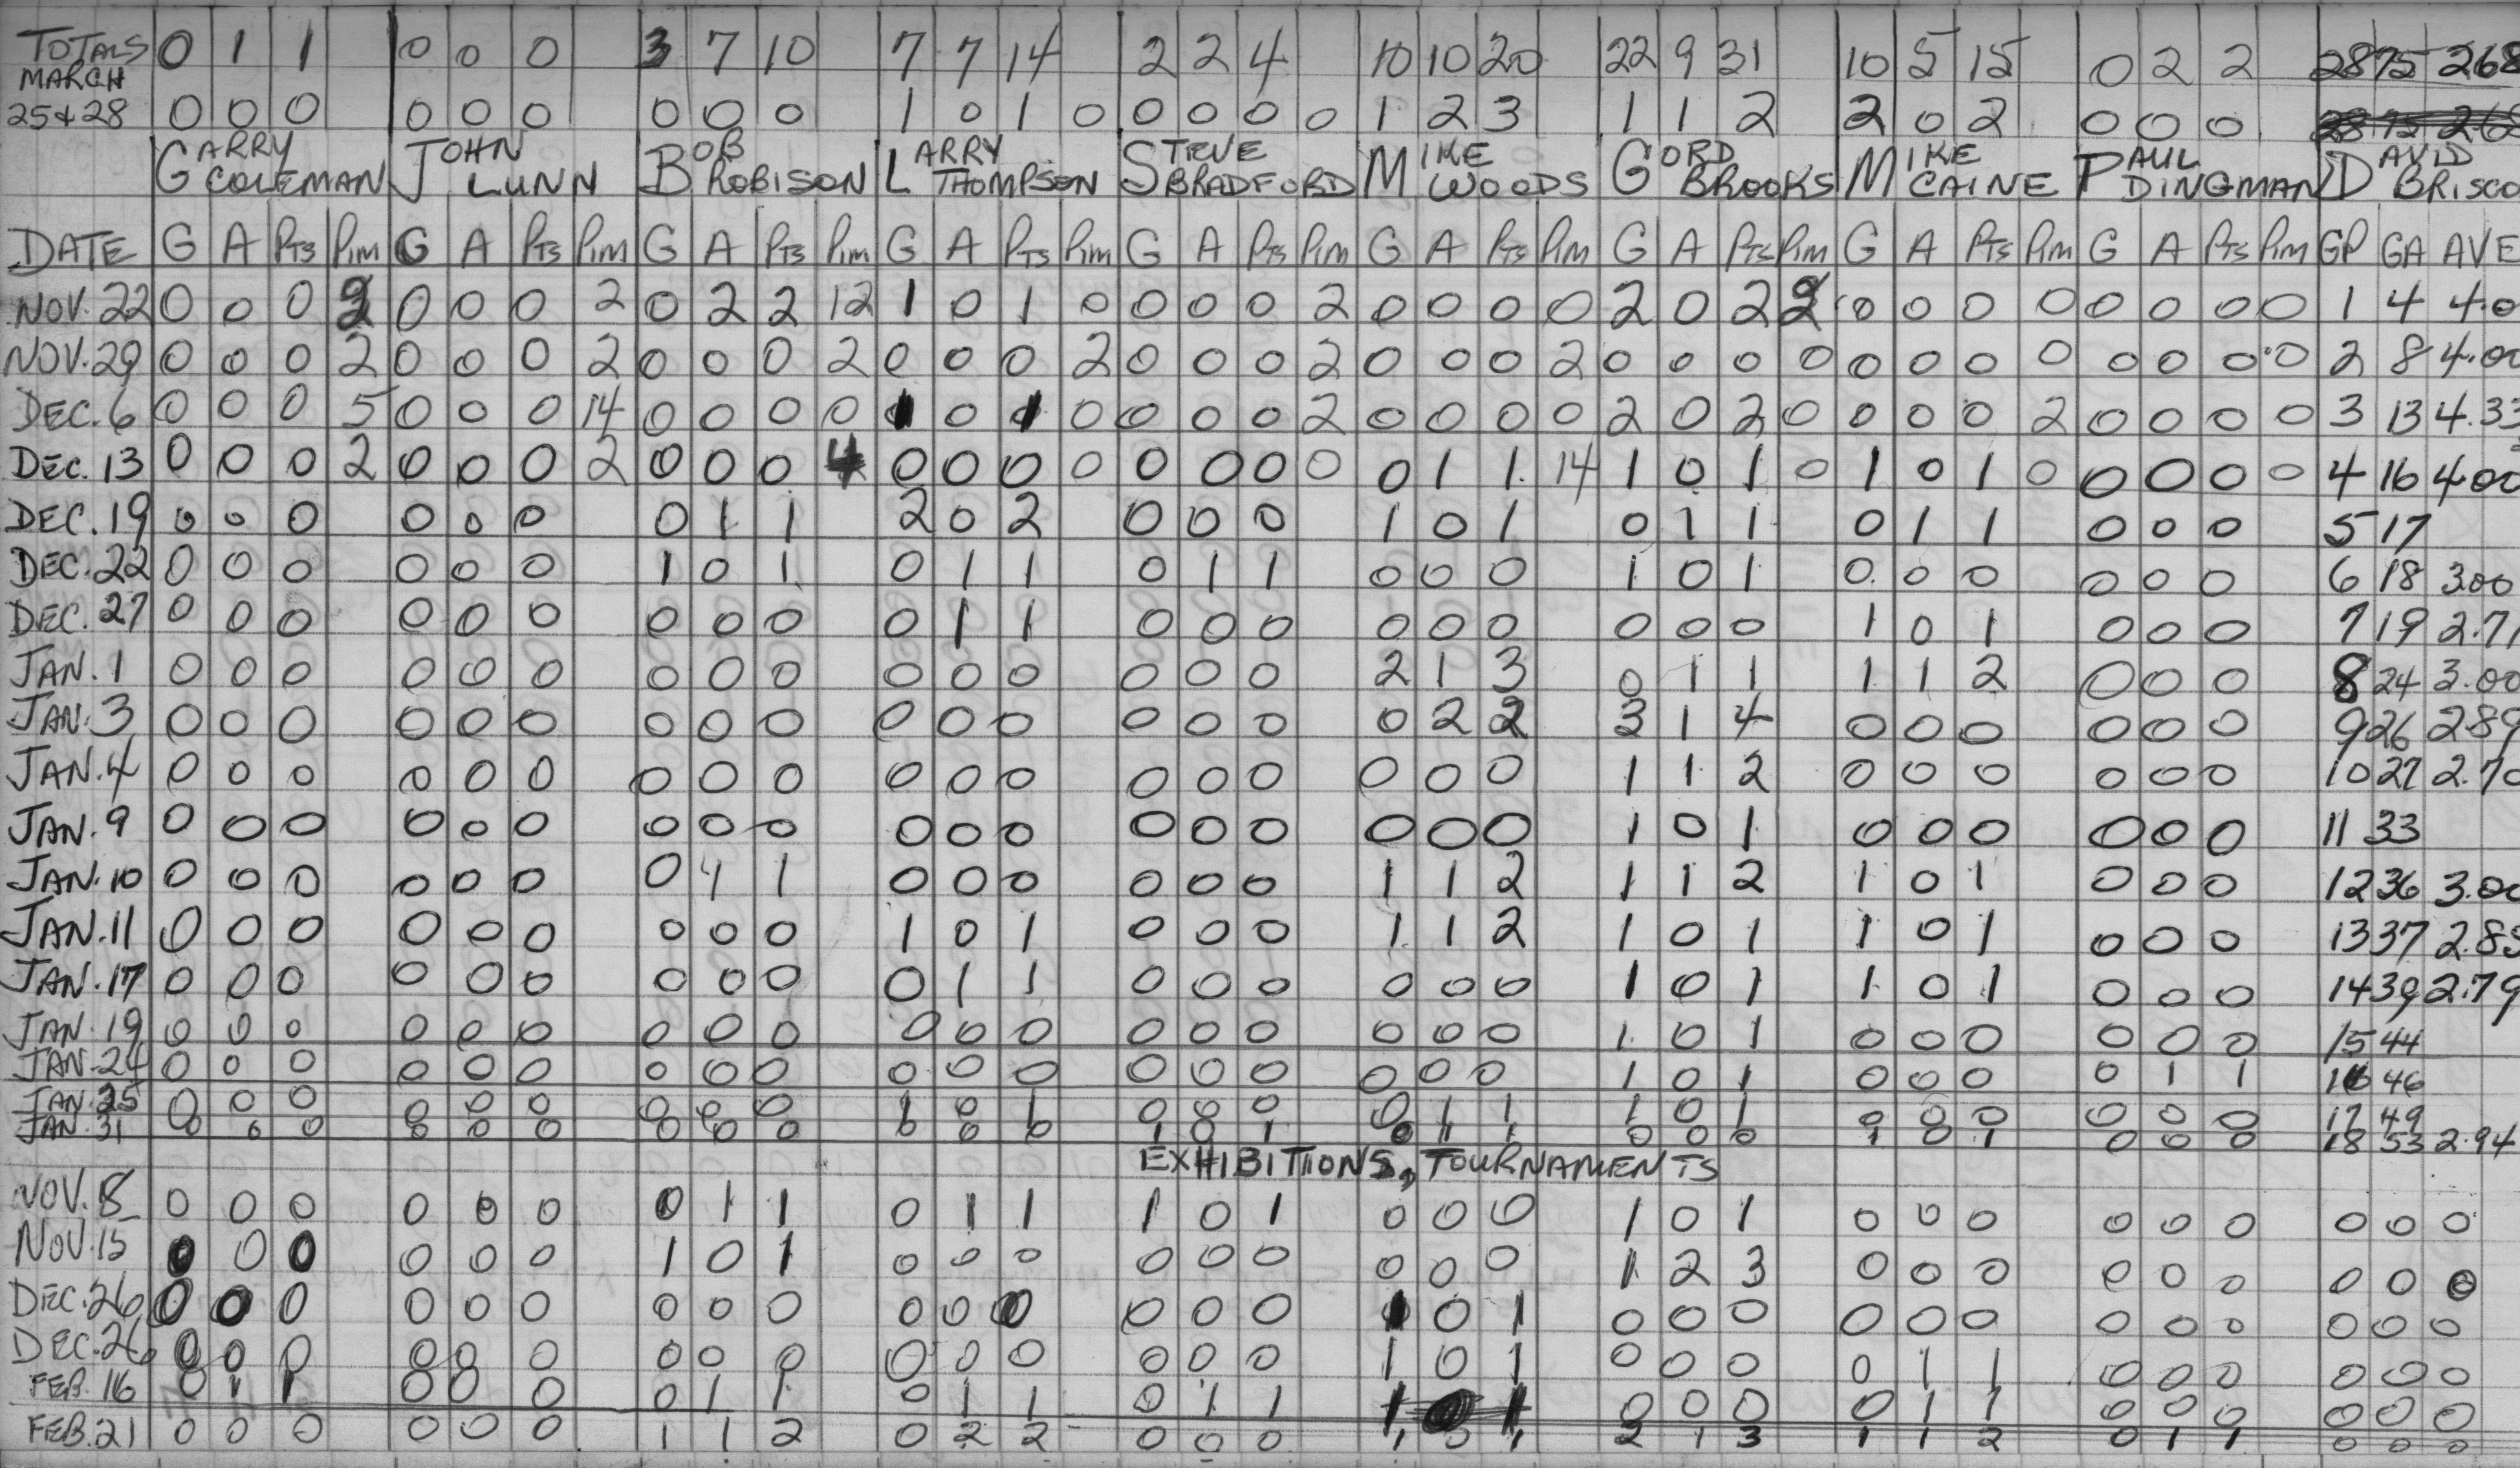 TOTALS 0 1 1 0 0 0 3 7 10 7 7 14 2 2 4 10 10 20 22 9 31 10 5 15 0 2 2 28 75 268
MARCH
25&28 0 0 0 0 0 0 0 0 0 1 0 1 0 0 0 0 0 1 2 3 1 1 2 2 0 2 0 0 0
GARRY COLEMAN JOHN LUNN BOB ROBISON LARRY THOMPSON STEVE BRADFORD MIKE WOODS GORD BROOKS MIKE CAINE PAUL DINGMAN DAVID BRISCO
DATE G A PTS PIM G A PTS PIM G A PTS PIM G A PTS PIM G A PTS PIM G A PTS PIM G A PTS PIM G A PTS PIM G A PTS PIM GP GA AVE
NOV. 22 0 0 0 2 0 0 0 2 0 2 2 12 1 0 1 0 0 0 0 2 0 0 0 0 2 0 2 2 0 0 0 0 0 0 0 0 1 4 4.0
NOV. 29 0 0 0 2 0 0 0 2 0 0 0 2 0 0 0 2 0 0 0 2 0 0 0 2 0 0 0 0 0 0 0 0 0 0 0 0 2 8 4.00
DEC. 6 0 0 0 5 0 0 0 14 0 0 0 0 1 0 1 0 0 0 0 2 0 0 0 0 2 0 2 0 0 0 0 2 0 0 0 0 3 13 4.33
DEC. 13 0 0 0 2 0 0 0 2 0 0 0 4 0 0 0 0 0 0 0 0 0 1 1 14 1 0 1 0 1 0 1 0 0 0 0 0 4 16 4.00
DEC. 19 0 0 0 0 0 0 0 1 1 2 0 2 0 0 0 1 0 1 0 1 1 0 1 1 0 0 0 5 17
DEC. 22 0 0 0 0 0 0 1 0 1 0 1 1 0 1 1 0 0 0 1 0 1 0 0 0 0 0 0 6 18 3.00
DEC. 27 0 0 0 0 0 0 0 0 0 0 1 1 0 0 0 0 0 0 0 0 0 1 0 1 0 0 0 7 19 2.71
JAN. 1 0 0 0 0 0 0 0 0 0 0 0 0 0 0 0 2 1 3 0 1 1 1 1 2 0 0 0 8 24 3.00
JAN. 3 0 0 0 0 0 0 0 0 0 0 0 0 0 0 0 0 2 2 3 1 4 0 0 0 0 0 0 9 26 2.89
JAN. 4 0 0 0 0 0 0 0 0 0 0 0 0 0 0 0 0 0 0 1 1 2 0 0 0 0 0 0 10 27 2.70
JAN. 9 0 0 0 0 0 0 0 0 0 0 0 0 0 0 0 0 0 0 1 0 1 0 0 0 0 0 0 11 33
JAN. 10 0 0 0 0 0 0 0 1 1 0 0 0 0 0 0 1 1 2 1 1 2 1 0 1 0 0 0 12 36 3.00
JAN. 11 0 0 0 0 0 0 0 0 0 1 0 1 0 0 0 1 1 2 1 0 1 1 0 1 0 0 0 13 37 2.85
JAN. 17 0 0 0 0 0 0 0 0 0 0 1 1 0 0 0 0 0 0 1 0 1 1 0 1 0 0 0 14 39 2.79
JAN. 19 0 0 0 0 0 0 0 0 0 0 0 0 0 0 0 0 0 0 1 0 1 0 0 0 0 0 0 15 44
JAN. 24 0 0 0 0 0 0 0 0 0 0 0 0 0 0 0 0 0 0 1 0 1 0 0 0 0 1 1 16 46
JAN. 25 0 0 0 0 0 0 0 0 0 1 0 1 0 0 0 0 1 1 1 0 1 0 0 0 0 0 0 17 49
JAN. 31 0 0 0 0 0 0 0 0 0 0 0 0 1 0 1 0 1 1 0 0 0 1 0 1 0 0 0 18 53 2.94
EXHIBITIONS, TOURNAMENTS
NOV. 8 0 0 0 0 0 0 0 1 1 0 1 1 1 0 1 0 0 0 1 0 1 0 0 0 0 0 0 0 0 0
NOV. 15 0 0 0 0 0 0 1 0 1 0 0 0 0 0 0 0 0 0 1 2 3 0 0 0 0 0 0 0 0 0
DEC. 26 0 0 0 0 0 0 0 0 0 0 0 0 0 0 0 1 0 1 0 0 0 0 0 0 0 0 0 0 0 0
DEC. 26 0 0 0 0 0 0 0 0 0 0 0 0 0 0 0 1 0 1 0 0 0 0 1 1 0 0 0 0 0 0
FEB. 16 0 1 1 0 0 0 0 1 1 0 1 1 0 1 1 1 0 1 0 0 0 0 1 1 0 0 0 0 0 0
FEB. 21 0 0 0 0 0 0 1 1 2 0 2 2 0 0 0 1 0 1 2 1 3 1 1 2 0 1 1 0 0 0